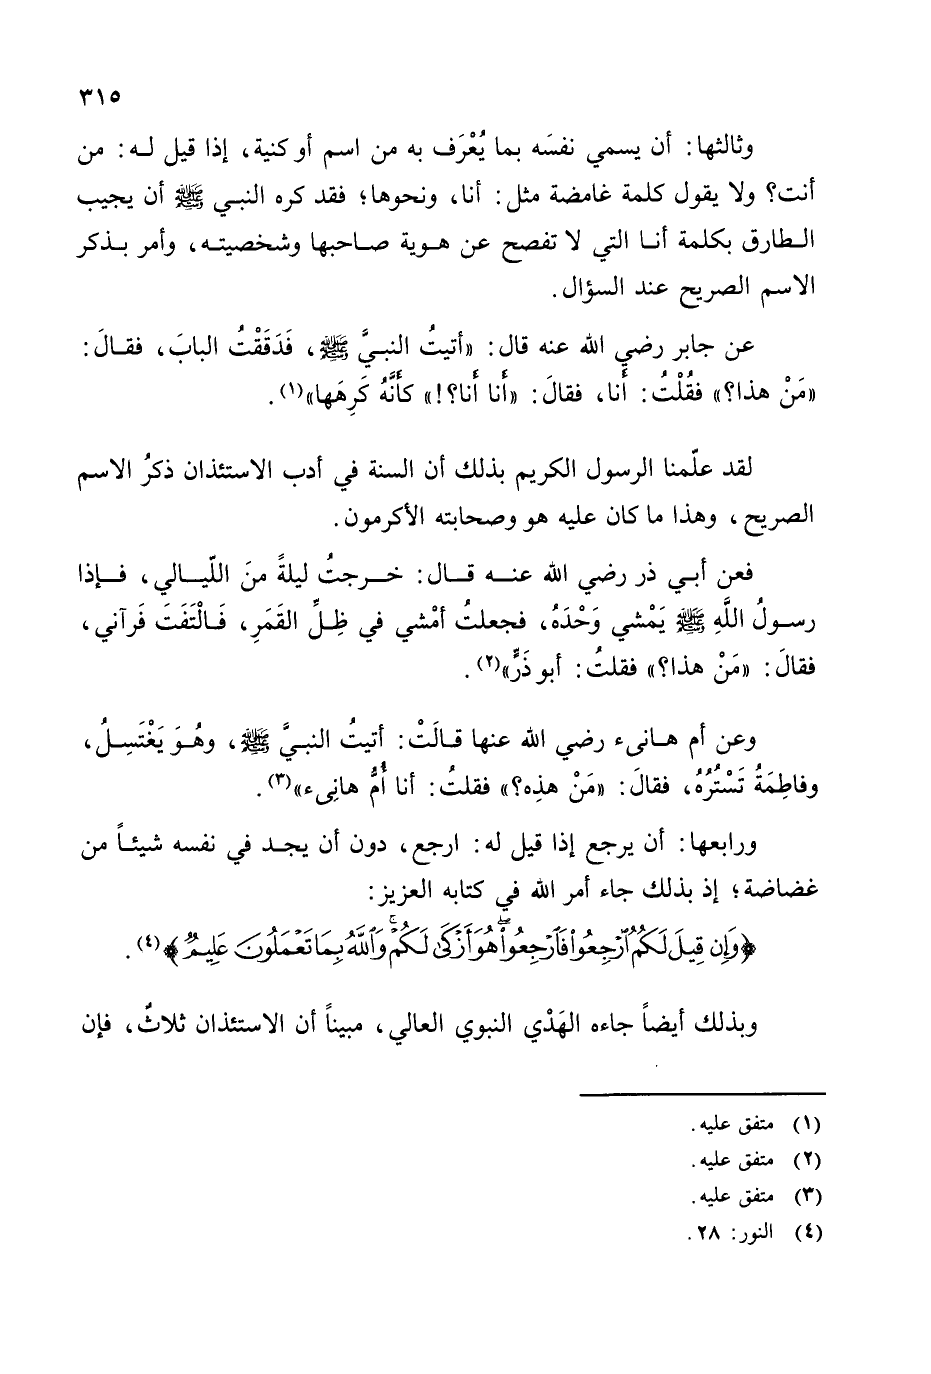 ٣١٥
وثالثها: أن يسمي نفسَه بما يُعْرَف به من اسم أو كنية، إذا قيل له: من
أنت؟ ولا يقول كلمة غامضة مثل: أنا، ونحوها؛ فقد كره النبي ﷺ أن يجيب
الطارق بكلمة أنا التي لا تفصح عن هوية صاحبها وشخصيته، وأمر بذكر
الاسم الصريح عند السؤال.
عن جابر رضي الله عنه قال: «أتيتُ النبيَّ ﷺ، فَدَقَقْتُ البابَ، فقالَ:
«مَنْ هذا؟» فقُلْتُ: أَنا، فقالَ: «أَنا أَنا؟!» كأَنَّهُ كَرِهَها»(١).
لقد علّمنا الرسول الكريم بذلك أن السنة في أدب الاستئذان ذكرُ الاسم
الصريح، وهذا ما كان عليه هو وصحابته الأكرمون.
فعن أبي ذر رضي الله عنه قال: خرجتُ ليلةً منَ اللّيالي، فإذا
رسولُ اللَّهِ ﷺ يَمْشي وَحْدَهُ، فجعلتُ أمْشي في ظِلِّ القمَرِ، فَالْتَفَتَ فَرآني،
فقالَ: «مَنْ هذا؟» فقلتُ: أبو ذَرٍّ»(٢).
وعن أم هانىء رضي الله عنها قالَتْ: أتيتُ النبيَّ ﷺ، وهُوَ يَغْتَسِلُ،
وفاطِمَةُ تَسْتُرُهُ، فقالَ: «مَنْ هذِه؟» فقلتُ: أنا أُمُّ هانِىء»(٣).
ورابعها: أن يرجع إذا قيل له: ارجع، دون أن يجد في نفسه شيئاً من
غضاضة؛ إذ بذلك جاء أمر الله في كتابه العزيز:
﴿وَإِن قِيلَ لَكُمُ ٱرْجِعُوا۟ فَٱرْجِعُوا۟ۖ هُوَ أَزْكَىٰ لَكُمْۚ وَٱللَّهُ بِمَا تَعْمَلُونَ عَلِيمٌ﴾(٤).
وبذلك أيضاً جاءه الهَدْي النبوي العالي، مبيناً أن الاستئذان ثلاثٌ، فإن
(١) متفق عليه.
(٢) متفق عليه.
(٣) متفق عليه.
(٤) النور: ٢٨.